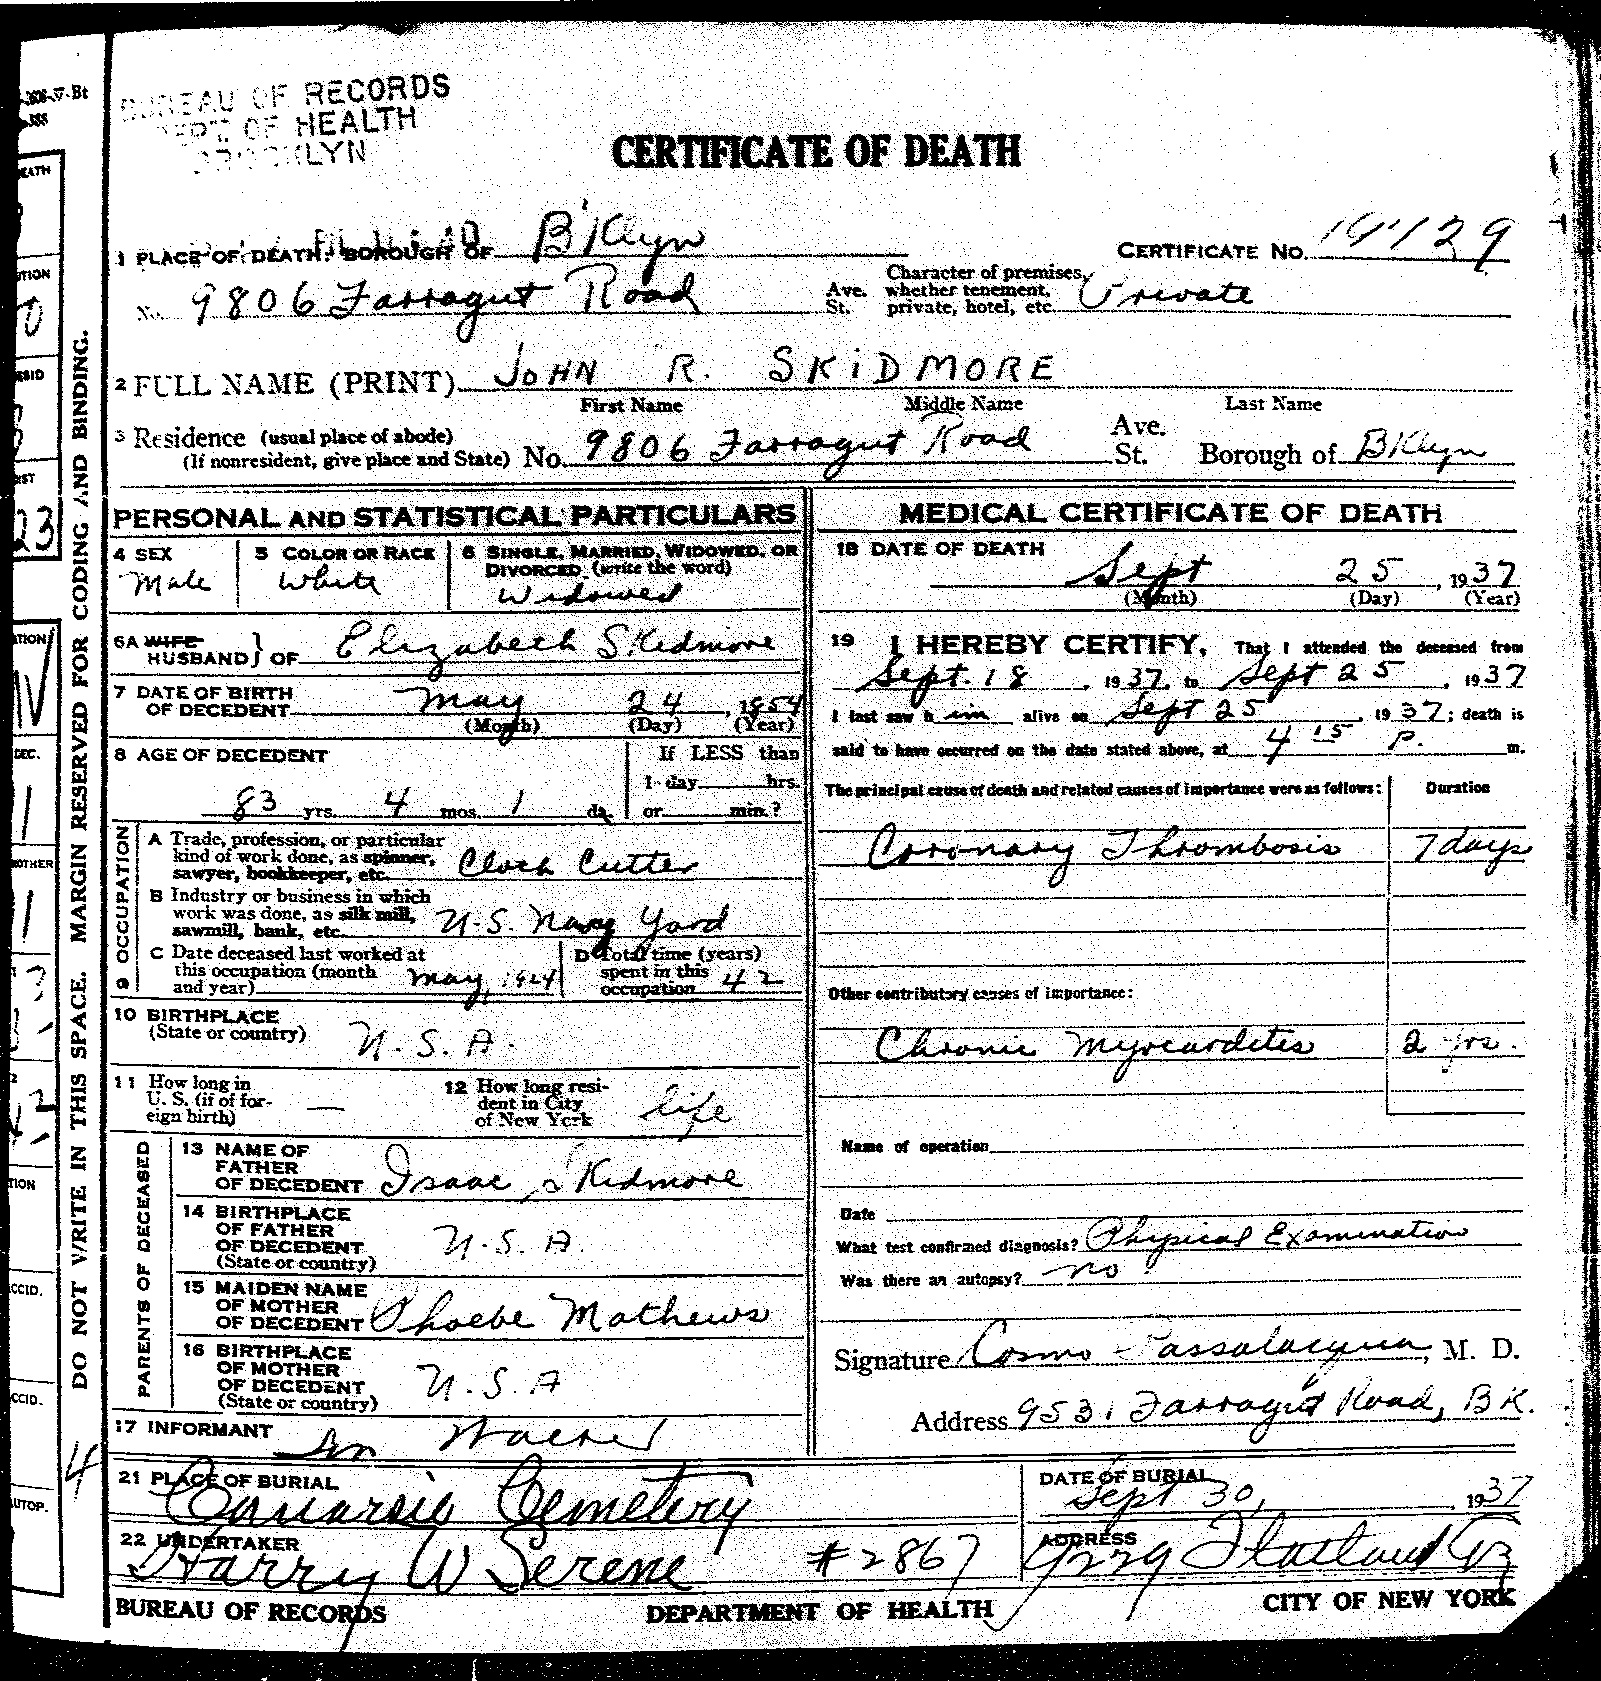 BUREAU OF RECORDS
DEP'T OF HEALTH
BROOKLYN
CERTIFICATE OF DEATH
1 PLACE OF DEATH: BOROUGH OF B'Klyn
CERTIFICATE No.
No. 9806 Farragut Road Ave. St.
Character of premises, whether tenement, private, hotel, etc. Private
2 FULL NAME (PRINT) JOHN R. SKIDMORE
First Name Middle Name Last Name
3 Residence (usual place of abode) (If nonresident, give place and State) No. 9806 Farragut Road Ave. St. Borough of BKlyn
DO NOT WRITE IN THIS SPACE. MARGIN RESERVED FOR CODING AND BINDING.
PERSONAL AND STATISTICAL PARTICULARS
4 SEX Male
5 COLOR OR RACE White
6 SINGLE, MARRIED, WIDOWED, OR DIVORCED (write the word) Widowed
6A WIFE HUSBAND } OF Elizabeth Skidmore
7 DATE OF BIRTH OF DECEDENT May 24, 1854
(Month) (Day) (Year)
8 AGE OF DECEDENT 83 yrs. 4 mos. 1 ds.
If LESS than 1 day hrs. or min.?
9 OCCUPATION
A Trade, profession, or particular kind of work done, as spinner, sawyer, bookkeeper, etc. Cloth Cutter
B Industry or business in which work was done, as silk mill, sawmill, bank, etc. U.S. Navy Yard
C Date deceased last worked at this occupation (month and year) May, 1924
D Total time (years) spent in this occupation 42
10 BIRTHPLACE (State or country) U.S.A.
11 How long in U. S. (if of foreign birth) —
12 How long resident in City of New York life
PARENTS OF DECEASED
13 NAME OF FATHER OF DECEDENT Isaac Skidmore
14 BIRTHPLACE OF FATHER OF DECEDENT (State or country) U.S.A.
15 MAIDEN NAME OF MOTHER OF DECEDENT Phoebe Mathews
16 BIRTHPLACE OF MOTHER OF DECEDENT (State or country) U.S.A
17 INFORMANT Son
MEDICAL CERTIFICATE OF DEATH
18 DATE OF DEATH Sept 25, 1937
(Month) (Day) (Year)
19 I HEREBY CERTIFY, That I attended the deceased from
Sept. 18, 1937, to Sept 25, 1937
I last saw him alive on Sept 25, 1937; death is
said to have occurred on the date stated above, at 4 15 P. m.
The principal cause of death and related causes of importance were as follows: Duration
Coronary Thrombosis 7 days
Other contributory causes of importance:
Chronic Myocarditis 2 yrs.
Name of operation
Date
What test confirmed diagnosis? Physical Examination
Was there an autopsy? no
Signature Cosmo Passalacqua, M. D.
Address 9531 Farragut Road, BK.
21 PLACE OF BURIAL Canarsie Cemetery
DATE OF BURIAL Sept 30, 1937
22 UNDERTAKER Harry W Serene #2867
ADDRESS
BUREAU OF RECORDS DEPARTMENT OF HEALTH CITY OF NEW YORK